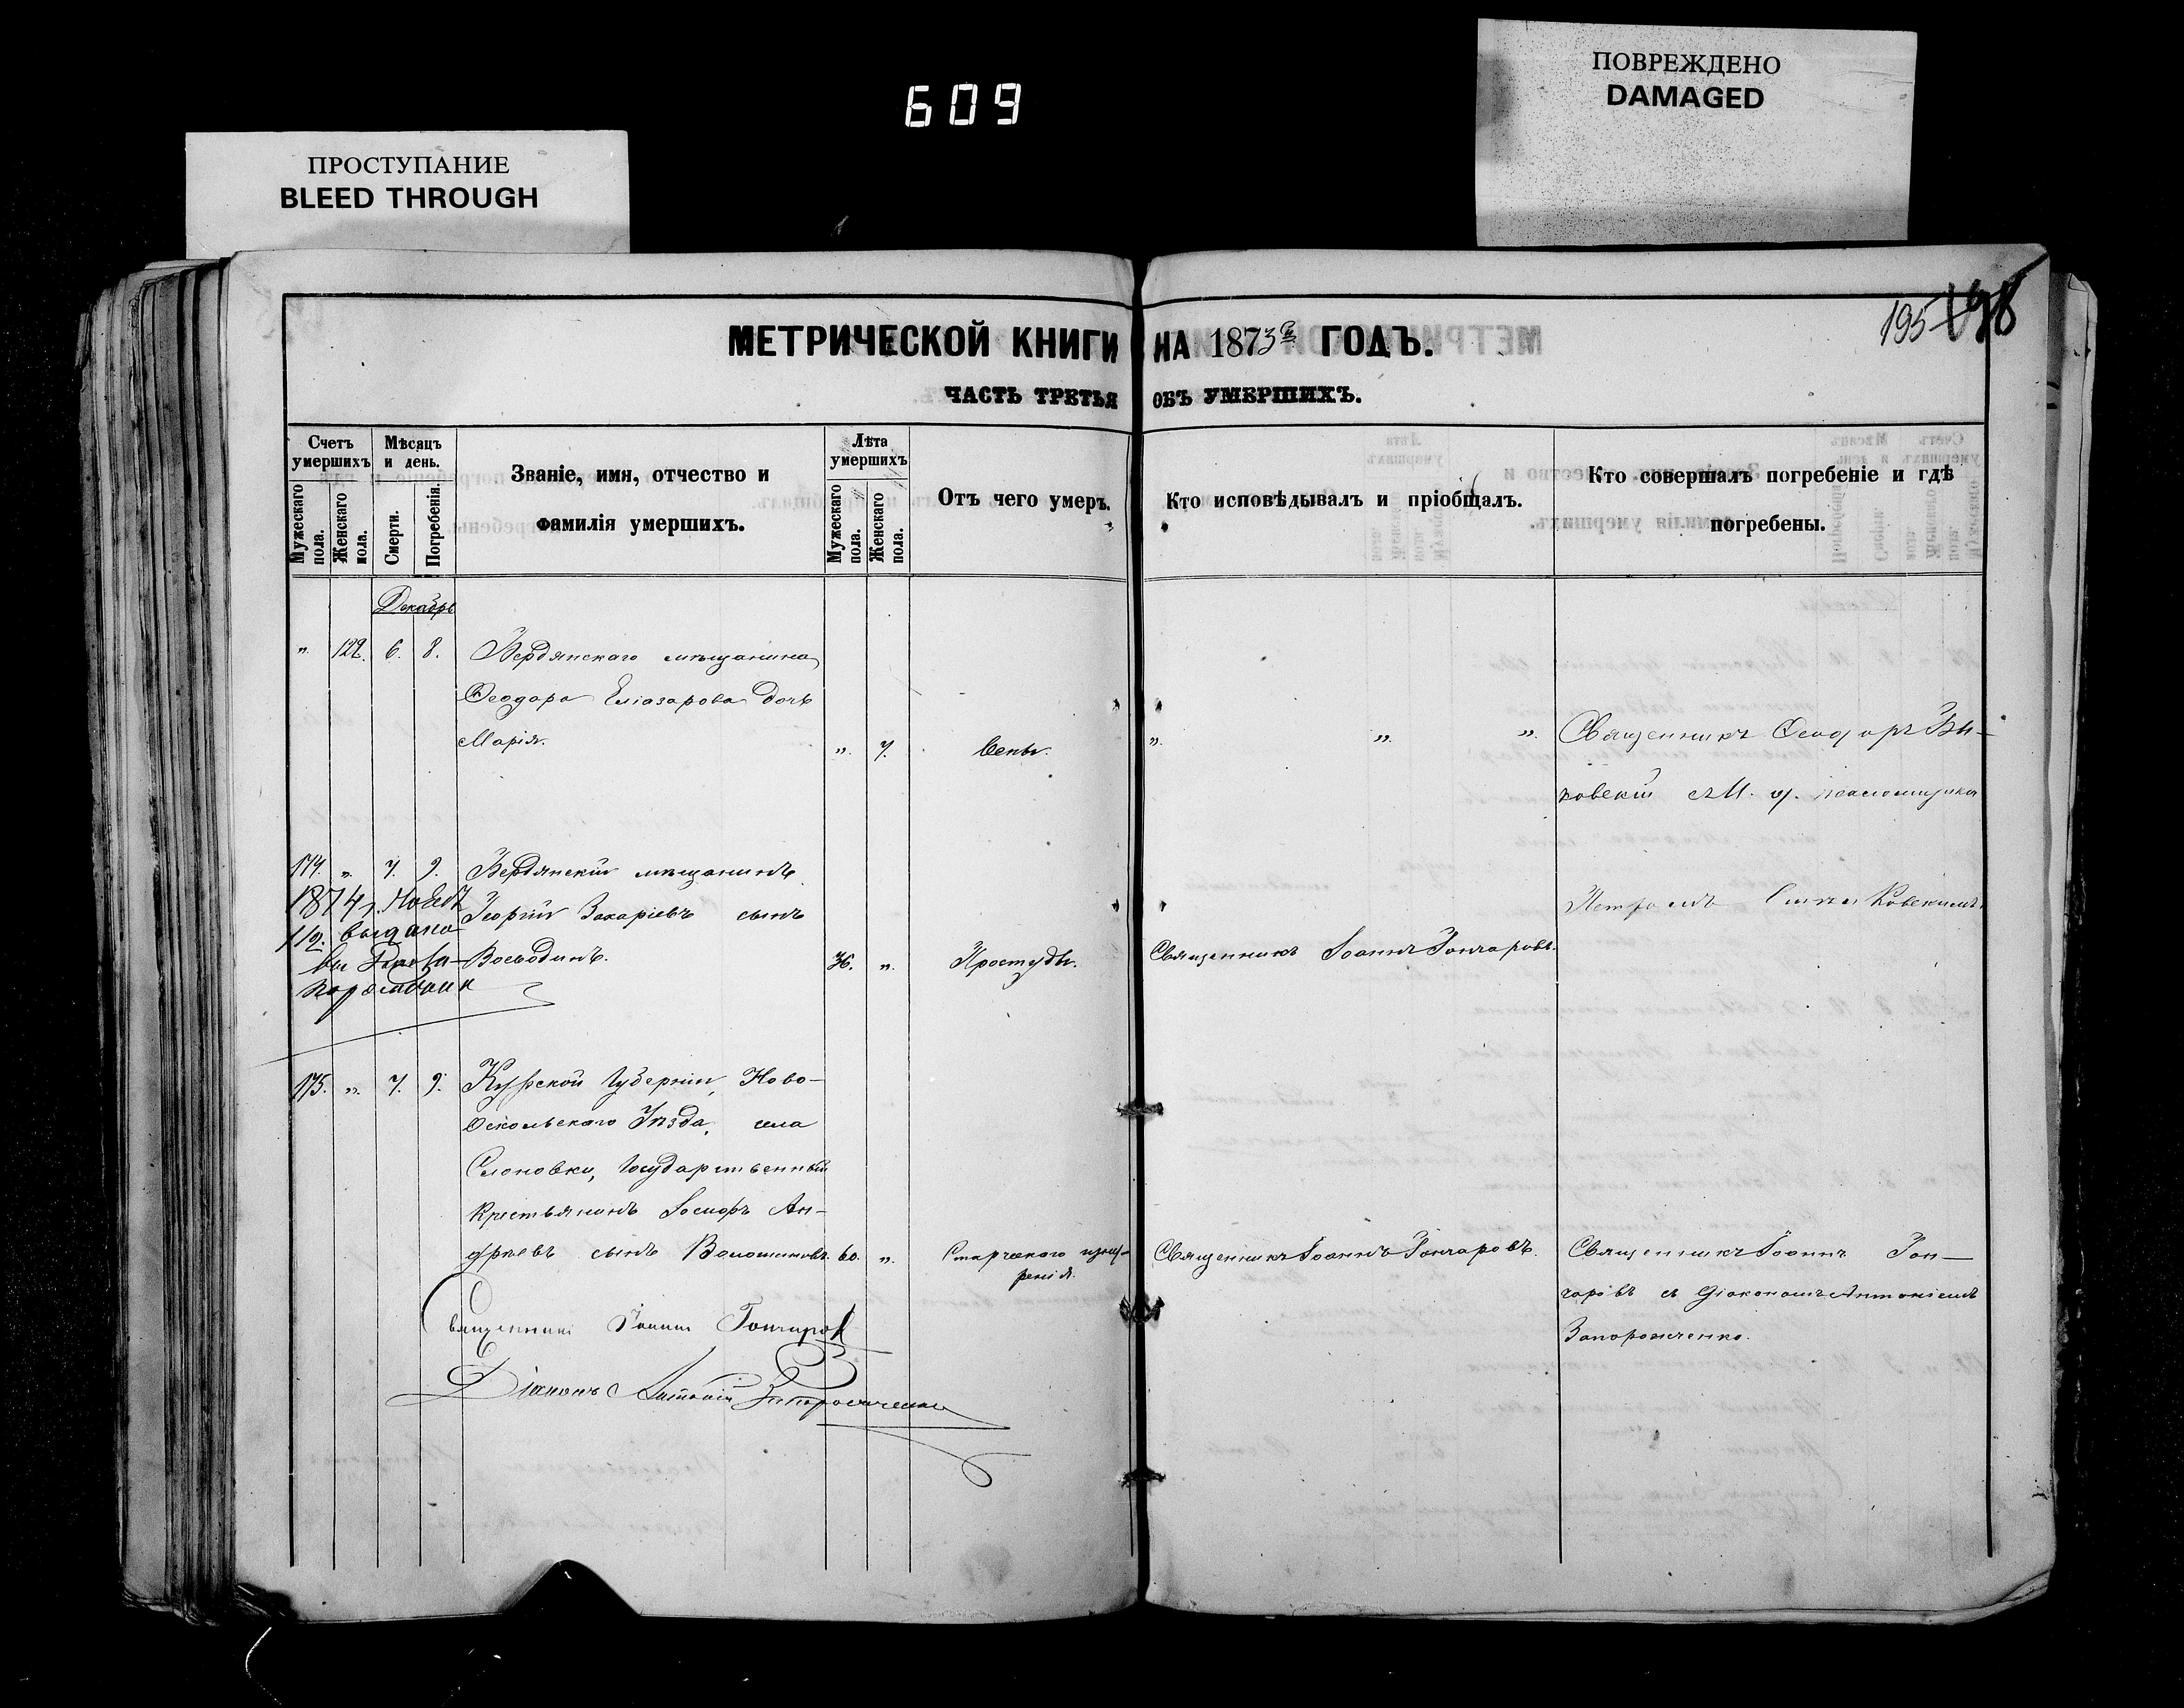 609
ПРОСТУПАНИЕ
BLEED THROUGH
ПОВРЕЖДЕНО
DAMAGED
195 198
МЕТРИЧЕСКОЙ КНИГИ НА 1873й ГОДЪ.
ЧАСТЬ ТРЕТЬЯ ОБЪ УМЕРШИХЪ.
Счетъ умершихъ
Мужескаго пола.
Женскаго пола.
Мѣсяцъ и день.
Смерти.
Погребенія.
Званіе, имя, отчество и
фамилія умершихъ.
Лѣта умершихъ
Мужескаго пола.
Женскаго пола.
Отъ чего умеръ.
Кто исповѣдывалъ и пріобщалъ.
Кто совершалъ погребеніе и гдѣ
погребены.
Декабрь
" 122. 6. 8. Бердянскаго мѣщанина
Феодора Еліазарова дочь
Марія. " 7. Оспы. " " " Священникъ Феодоръ Бы-
ковскій с. И. д. псаломщика
Петромъ
174. " 7. 9. Бердянскій мѣщанинъ
Георгій Захаріевъ сынъ
Воеводинъ. 36. " Простуды. Священникъ Іоаннъ Гончаровъ.
1874 г. Нояб
112. выдано
175. " 7. 9. Курской Губерніи, Ново-
Оскольскаго Уѣзда, села
Слоновки, Государственный
Крестьянинъ Іосифъ Ан-
дреевъ сынъ Волошиновъ. 60. " Старческаго изну-
ренія.
Священникъ Іоаннъ Гончаровъ. Священникъ Іоаннъ Гон-
чаровъ съ Діакономъ Антоніемъ
Запорожченко.
Священникъ Іоаннъ Гончаровъ
Діаконъ Антоній Запорожченко